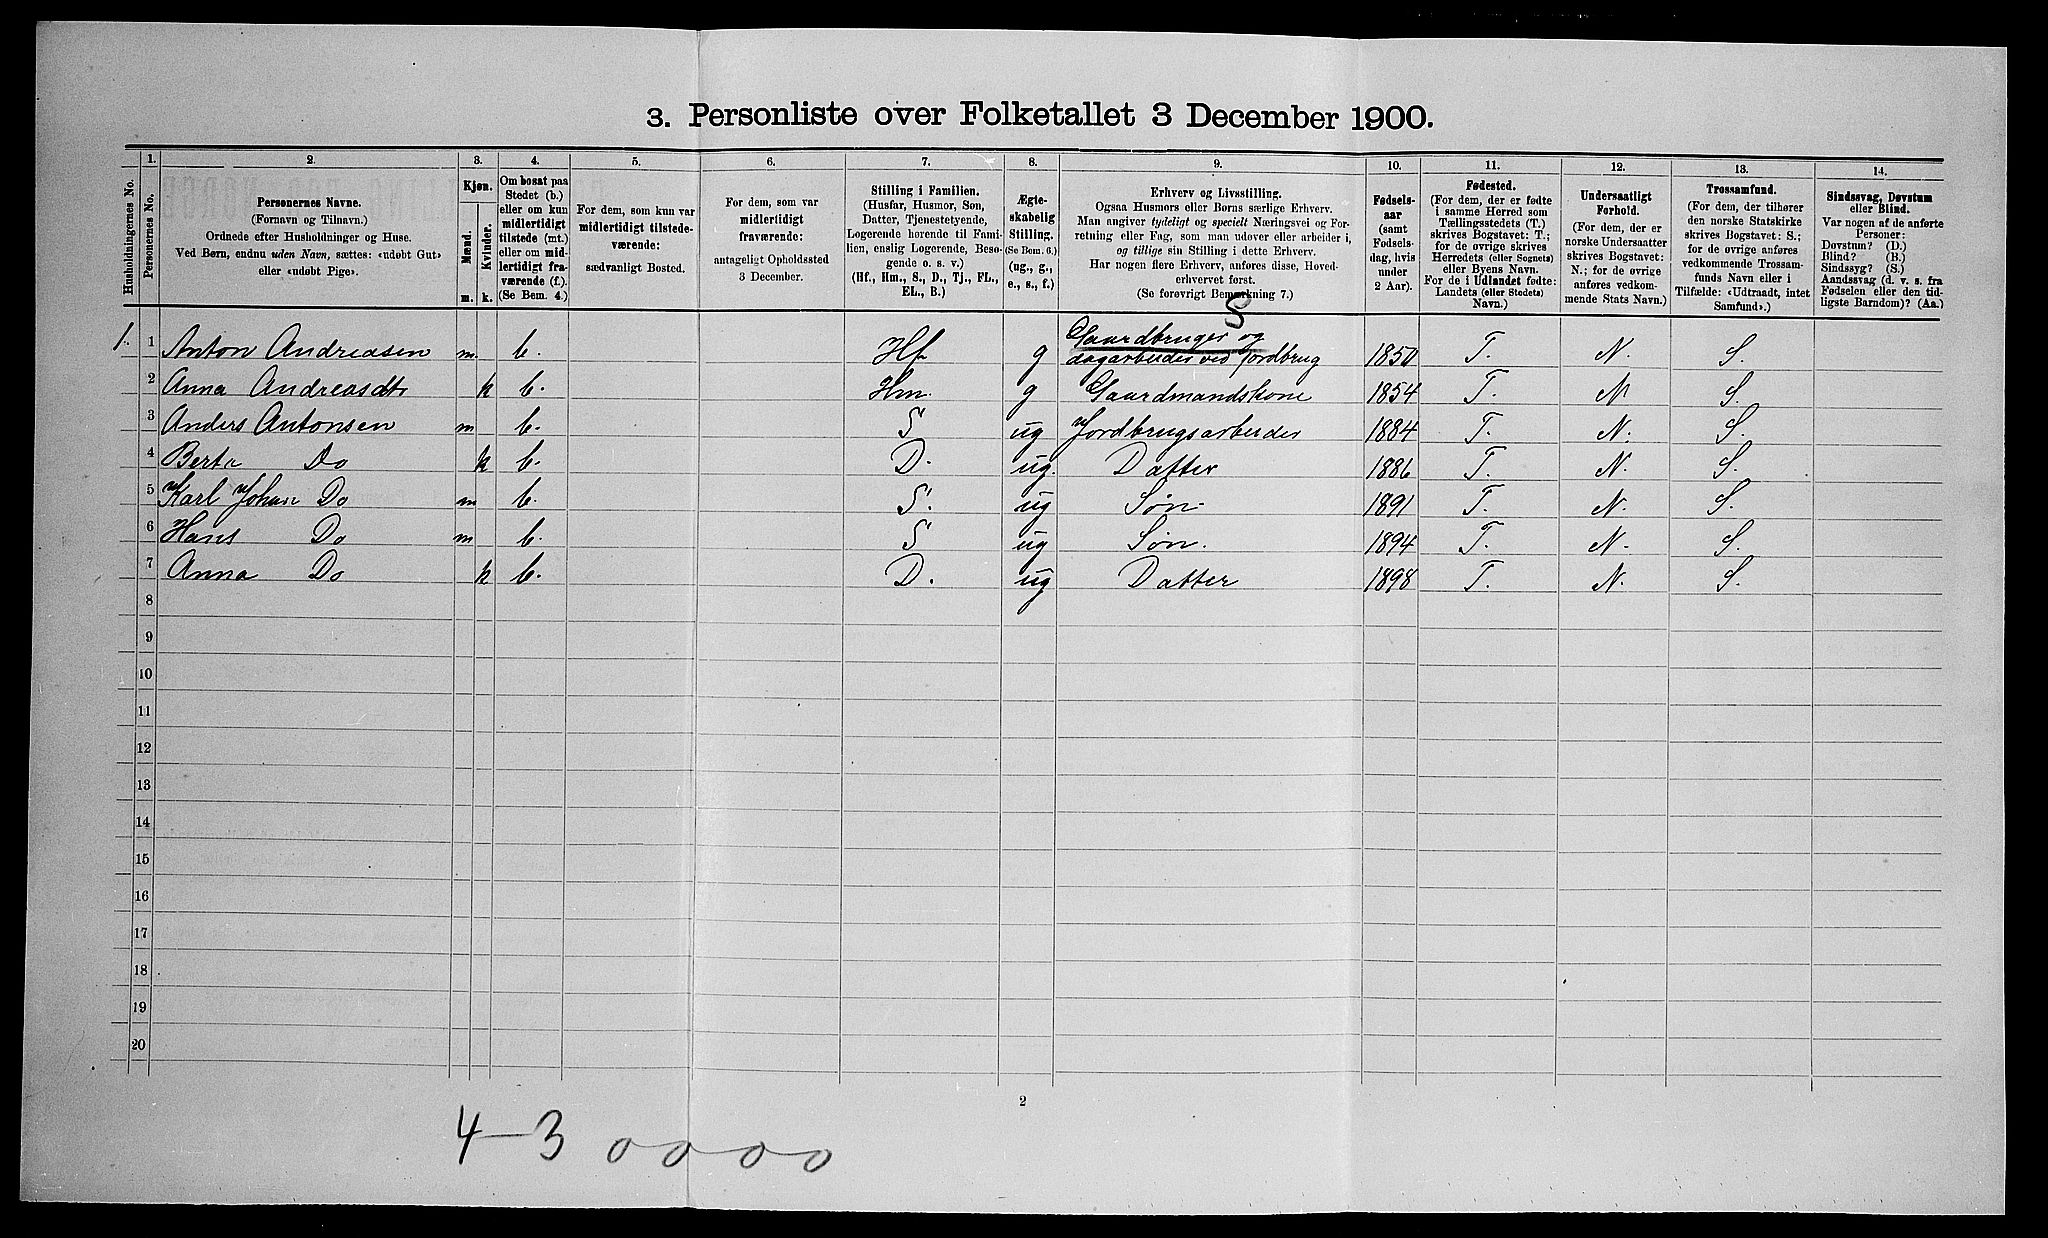 3. Personliste over Folketallet 3 December 1900.
1. 2. 3. 4. 5. 6. 7. 8. 9. 10. 11. 12. 13. 14.
Husholdningernes No.
Personernes No.
Personernes Navne.
(Fornavn og Tilnavn.)
Ordnede efter Husholdninger og Huse.
Ved Børn, endnu uden Navn, sættes: «udøbt Gut»
eller «udøbt Pige».
Kjøn.
Mænd.
Kvinder.
m. k.
Om bosat paa
Stedet (b.)
eller om kun
midlertidigt
tilstede (mt.)
eller om mid-
lertidigt fra-
værende (f.).
(Se Bem. 4.)
For dem, som kun var
midlertidigt tilstede-
værende:
sædvanligt Bosted.
For dem, som var
midlertidigt
fraværende:
antageligt Opholdssted
3 December.
Stilling i Familien.
(Husfar, Husmor, Søn,
Datter, Tjenestetyende,
Logerende hørende til Fami-
lien, enslig Logerende, Besø-
gende o. s. v.)
(Hf., Hm., S., D., Tj., FL.,
EL., B.)
Ægte-
skabelig
Stilling.
(Se Bem. 6.)
(ug., g.,
e., s., f.)
Erhverv og Livsstilling.
Ogsaa Husmors eller Børns særlige Erhverv.
Man angiver tydeligt og specielt Næringsvei og For-
retning eller Fag, som man udøver eller arbeider i,
og tillige sin Stilling i dette Erhverv.
Har nogen flere Erhverv, anføres disse, Hoved-
erhvervet først.
(Se forøvrigt Bemærkning 7.)
Fødsels-
aar
(samt
Fødsels-
dag, hvis
under
2 Aar).
Fødested.
(For dem, der er fødte
i samme Herred som
Tællingsstedets (T.)
skrives Bogstavet: T.;
for de øvrige skrives
Herredets (eller Sognets)
eller Byens Navn.
For de i Udlandet fødte:
Landets (eller Stedets)
Navn.)
Undersaatligt
Forhold.
(For dem, der er
norske Undersaatter
skrives Bogstavet:
N.; for de øvrige
anføres vedkom-
mende Stats Navn.)
Trossamfund.
(For dem, der tilhører
den norske Statskirke
skrives Bogstavet: S.;
for de øvrige anføres
vedkommende Trossam-
funds Navn eller i
Tilfælde: «Udtraadt, intet
Samfund».)
Sindssvag, Døvstum
eller Blind.
Var nogen af de anførte
Personer:
Døvstum? (D.)
Blind? (B.)
Sindssyg? (S.)
Aandssvag (d. v. s. fra
Fødselen eller den tid-
ligste Barndom)? (Aa.)
S
1. 1 Anton Andreasen m. b. Hf g Gaardbruger og
dagarbeider ved Jordbrug 1850 T. N. S.
2 Anna Andreasdtr k b. Hm. g Gaardmandskone 1854 T. N S.
3 Anders Antonsen m b. S ug Jordbrugsarbeider 1884 T. N. S.
4 Berta Do k b. D. ug. Datter 1886 T. N. S.
5 Karl Johan Do m b. S. ug Søn 1891 T. N. S.
6 Hans Do m b. S ug Søn. 1894 T. N. S.
7 Anna Do k b. D. ug Datter 1898 T. N. S.
8
9
10
11
12
13
14
15
16
17
18
19
20
2
4-3 0 0 0 0